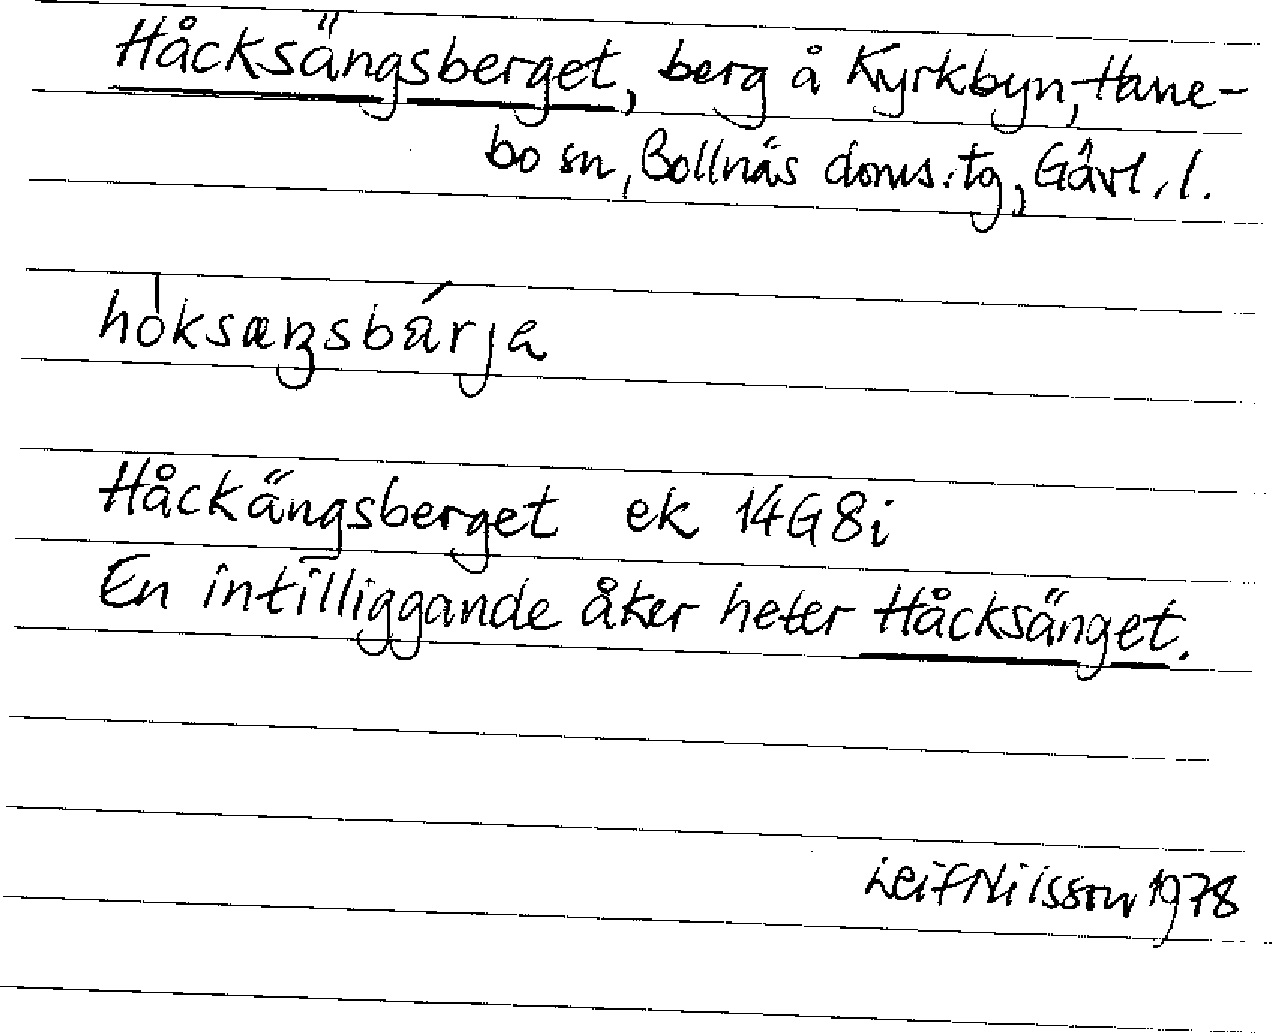 Håcksängsberget, berg å Kyrkbyn, Hane-
bo sn, Bollnäs doms:tg, Gävl. l.
Håckängsberget ek 14G8i
En intilliggande åker heter Håcksänget.
Leif Nilsson 1978